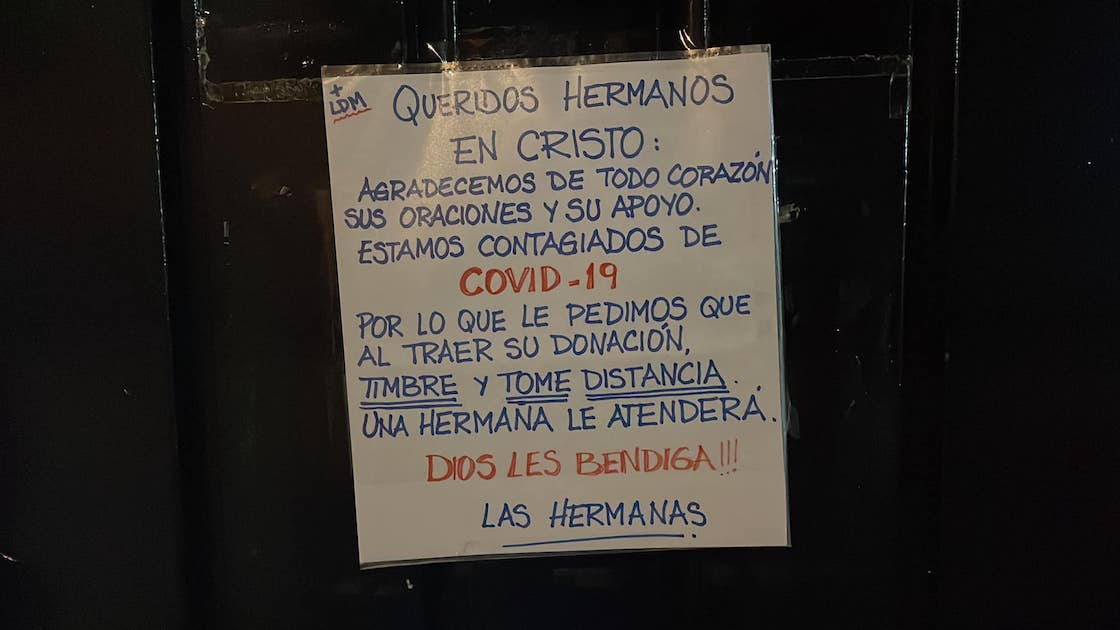 +
LDM
QUERIDOS HERMANOS
EN CRISTO:
AGRADECEMOS DE TODO CORAZÓN
SUS ORACIONES Y SU APOYO.
ESTAMOS CONTAGIADOS DE
COVID-19
POR LO QUE LE PEDIMOS QUE
AL TRAER SU DONACIÓN,
TIMBRE Y TOME DISTANCIA.
UNA HERMANA LE ATENDERÁ.
DIOS LES BENDIGA!!!
LAS HERMANAS